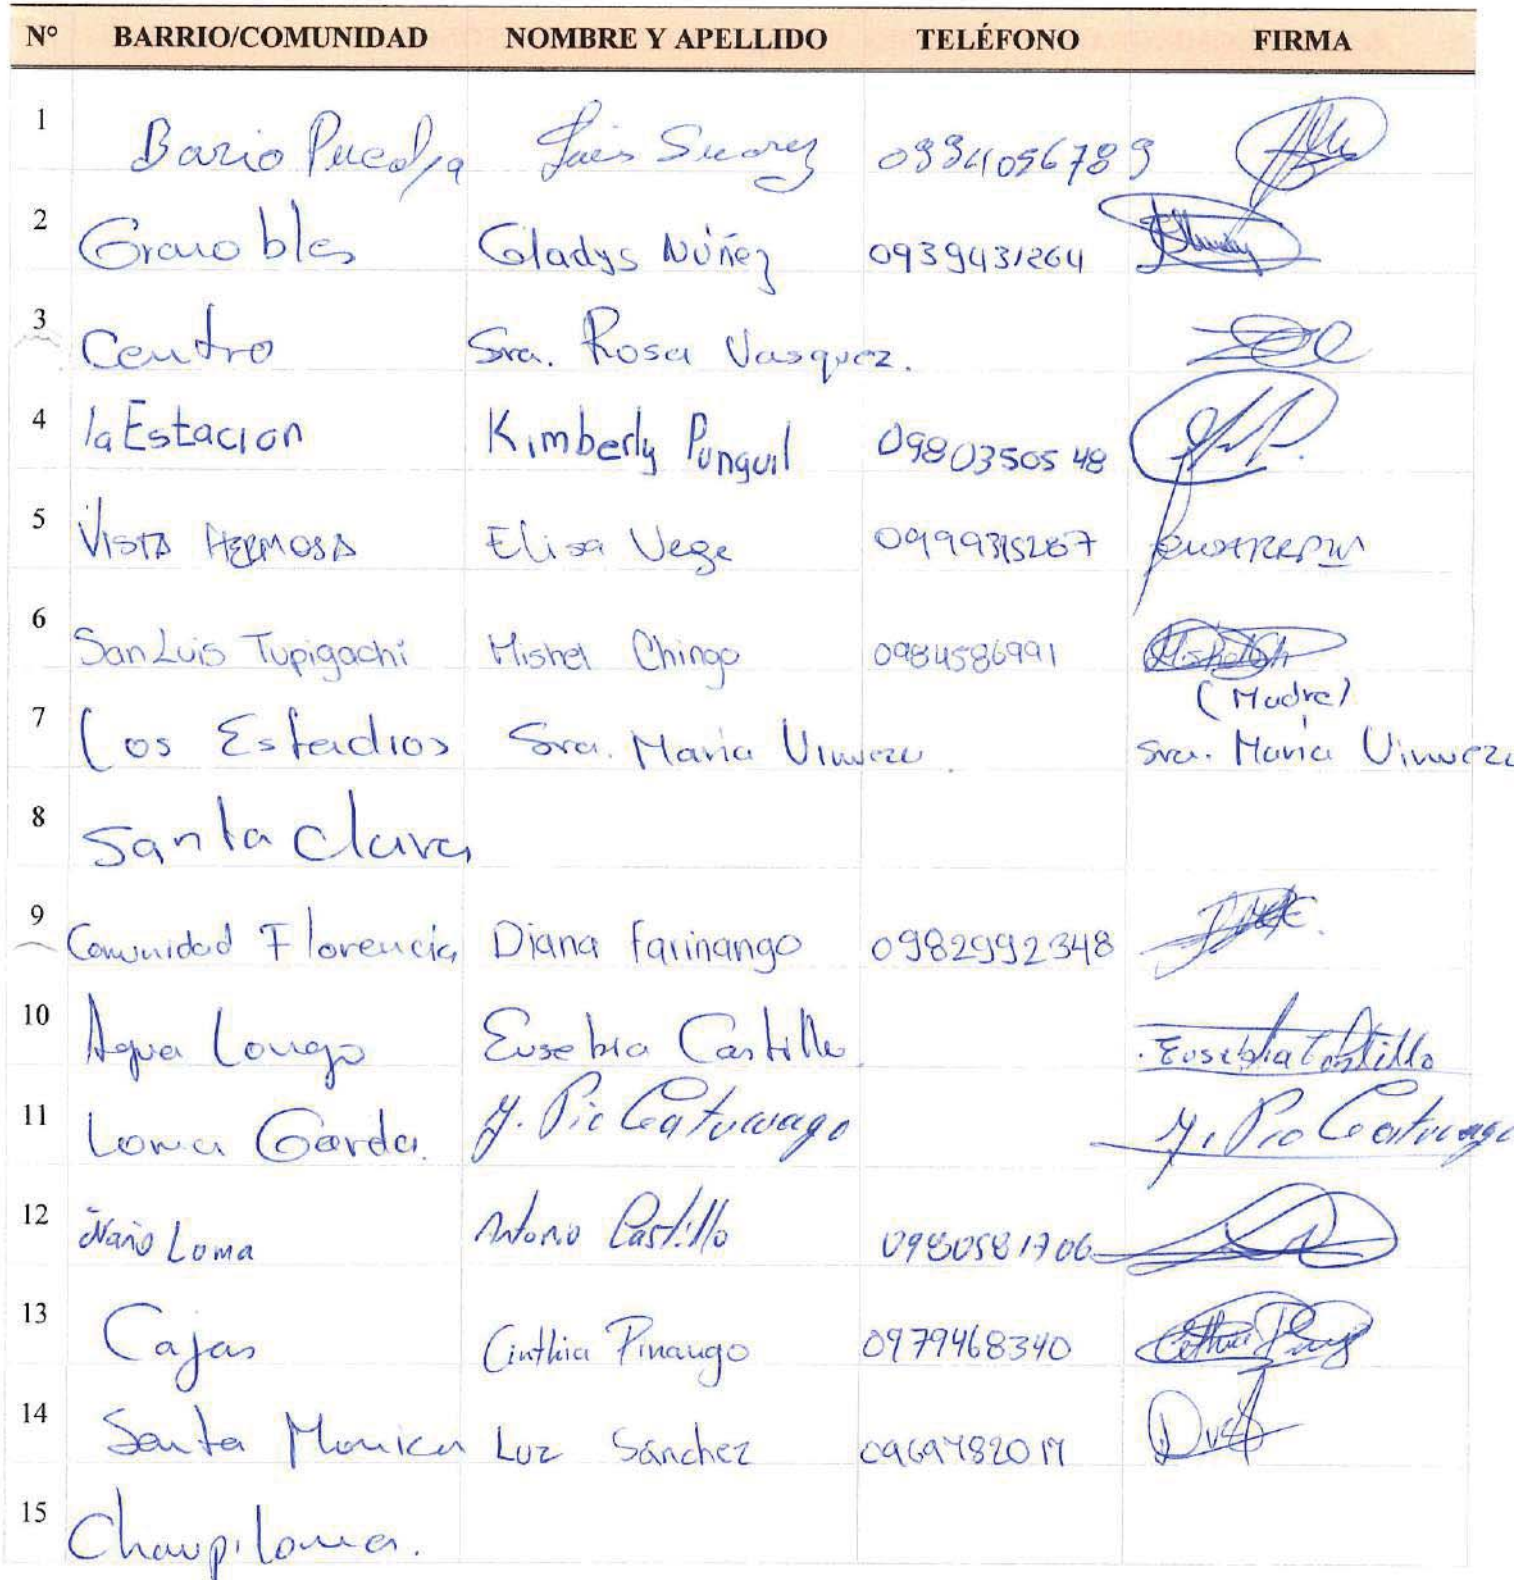 N° BARRIO/COMUNIDAD NOMBRE Y APELLIDO TELÉFONO FIRMA
1 Bario Luis Suarez
2 Granobles Gladys Núñez 0939431264
3 Centro Sra. Rosa Vasquez.
4 la Estacion Kimberly Punguil 0980350548
5 VISTA HERMOSA Elisa Vega
6 San Luis Tupigachi Mishel Chingo 0984586991
(Madre)
7 Los Estadios Sra. Maria Sra. Maria
8 Santa Clara
9 Comunidad Florencia Diana Farinango 0982992348
10 Agua Longo Eusebia Castillo Eusebia Castillo
11 Loma Gorda. J. Pio Catucuago J. Pio Catucuago
12 Ñaño Loma Antonio Castillo 0980581706
13 Cajas Cinthia Pinango 0979468340
14 Santa Monica Luz Sánchez
15 Chaupiloma.